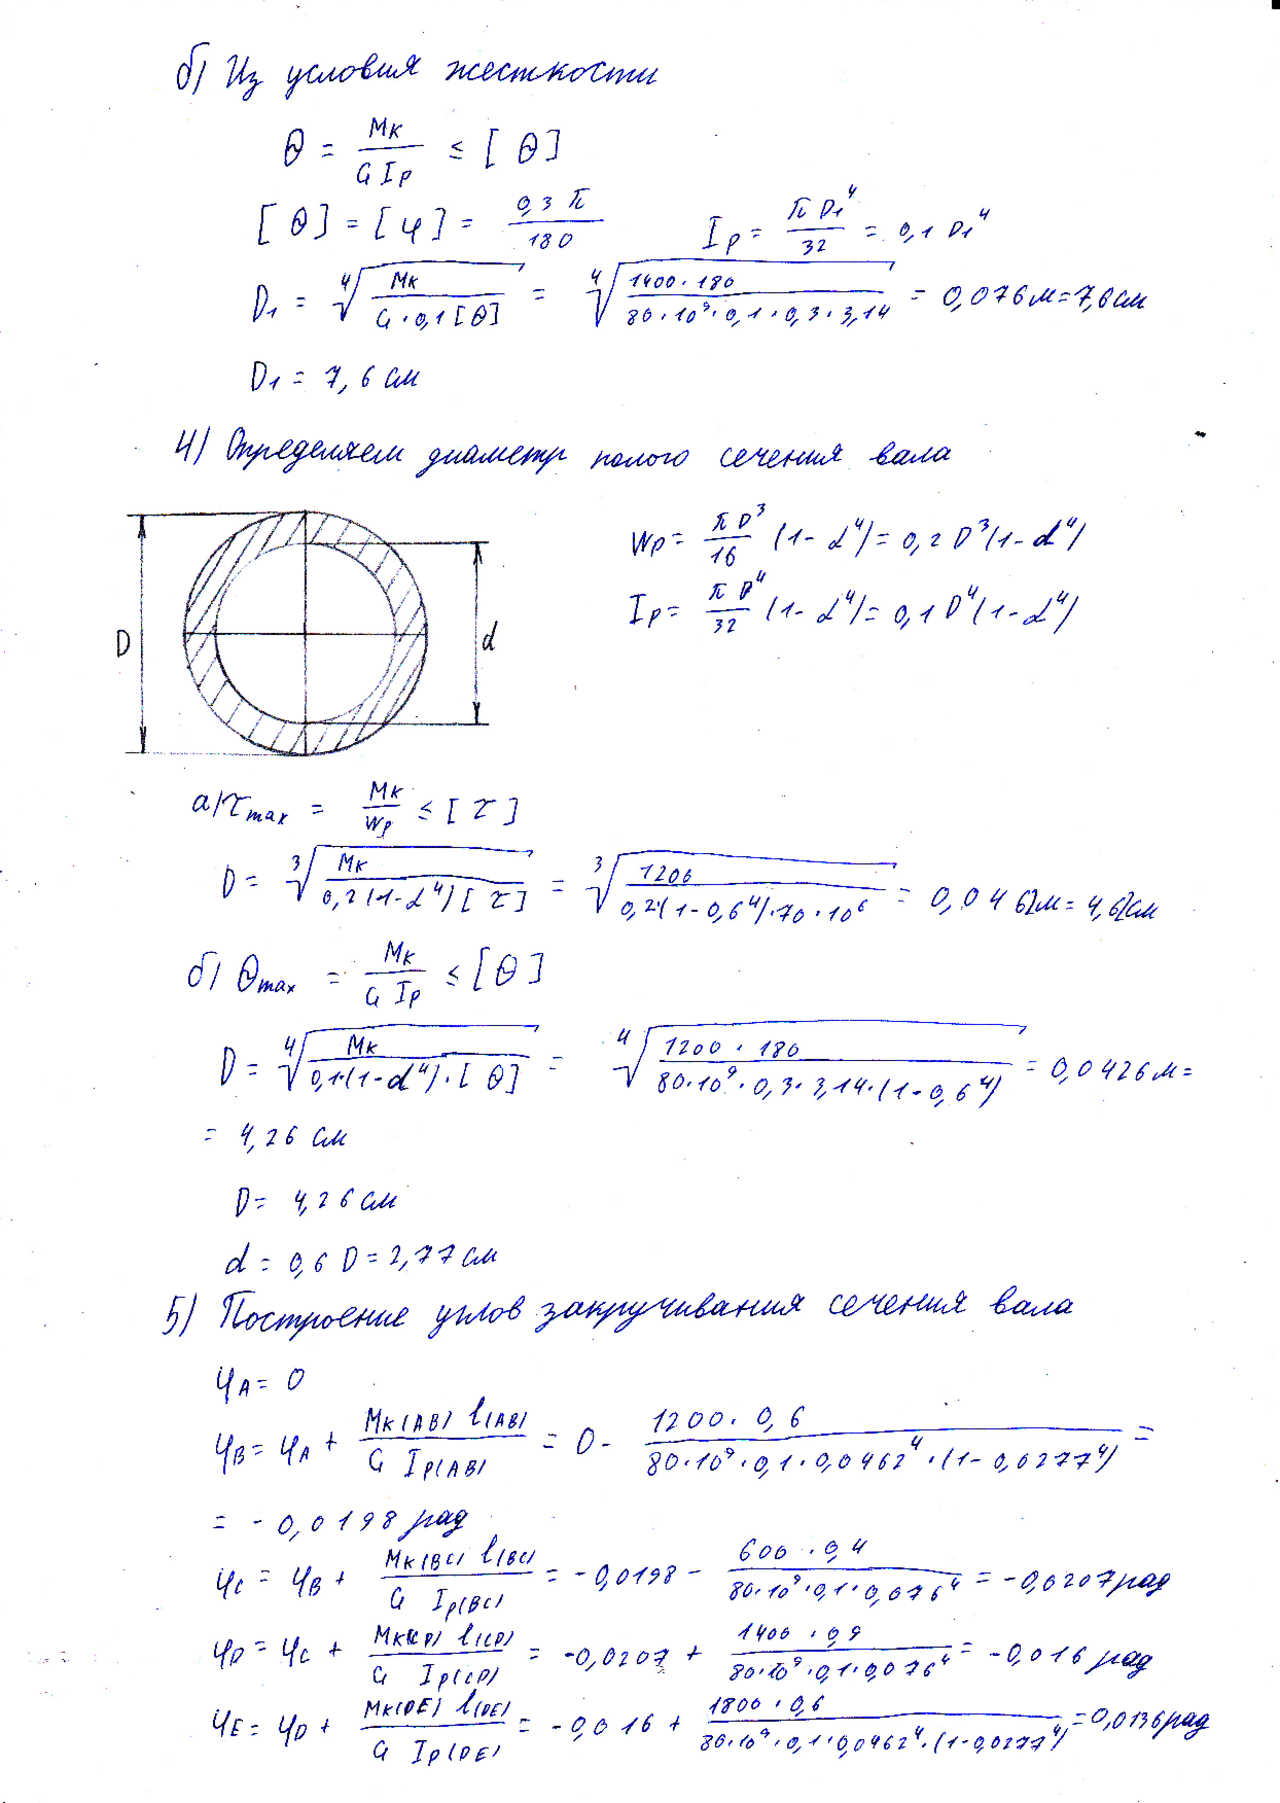 б) Из условия жесткости
θ = Mк / G Iр ≤ [ θ ]
[ θ ] = [ φ ] = 0,3 π / 180   Iр = π D₁⁴ / 32 = 0,1 D₁⁴
D₁ = ⁴√(Mк / G · 0,1 [θ]) = ⁴√(1400 · 180 / 80 · 10⁹ · 0,1 · 0,3 · 3,14) = 0,076 м = 7,6 см
D₁ = 7,6 см
4) Определяем диаметр полого сечения вала
Wр = π D³ / 16 (1 - α⁴) = 0,2 D³ (1 - α⁴)
Iр = π D⁴ / 32 (1 - α⁴) = 0,1 D⁴ (1 - α⁴)
D d
а) τmax = Mк / Wр ≤ [ τ ]
D = ³√(Mк / 0,2 (1 - α⁴) [ τ ]) = ³√(1200 / 0,2 · (1 - 0,6⁴) · 70 · 10⁶) = 0,0462м = 4,62см
б) θmax = Mк / G Iр ≤ [ θ ]
D = ⁴√(Mк / 0,1 · (1 - α⁴) · [ θ ]) = ⁴√(1200 · 180 / 80 · 10⁹ · 0,3 · 3,14 · (1 - 0,6⁴)) = 0,0426 м =
= 4,26 см
D = 4,26 см
d = 0,6 D = 2,77 см
5) Построение углов закручивания сечения вала
φA = 0
φB = φA + Mк(AB) l(AB) / G Iр(AB) = 0 - 1200 · 0,6 / 80 · 10⁹ · 0,1 · 0,0462⁴ · (1 - 0,0277⁴) =
= - 0,0198 рад
φC = φB + Mк(BC) l(BC) / G Iр(BC) = - 0,0198 - 600 · 0,4 / 80 · 10⁹ · 0,1 · 0,076⁴ = - 0,0207 рад
φD = φC + Mк(CD) l(CD) / G Iр(CD) = - 0,0207 + 1400 · 0,9 / 80 · 10⁹ · 0,1 · 0,076⁴ = - 0,016 рад
φE = φD + Mк(DE) l(DE) / G Iр(DE) = - 0,016 + 1800 · 0,6 / 80 · 10⁹ · 0,1 · 0,0462⁴ · (1 - 0,0277⁴) = 0,0136 рад